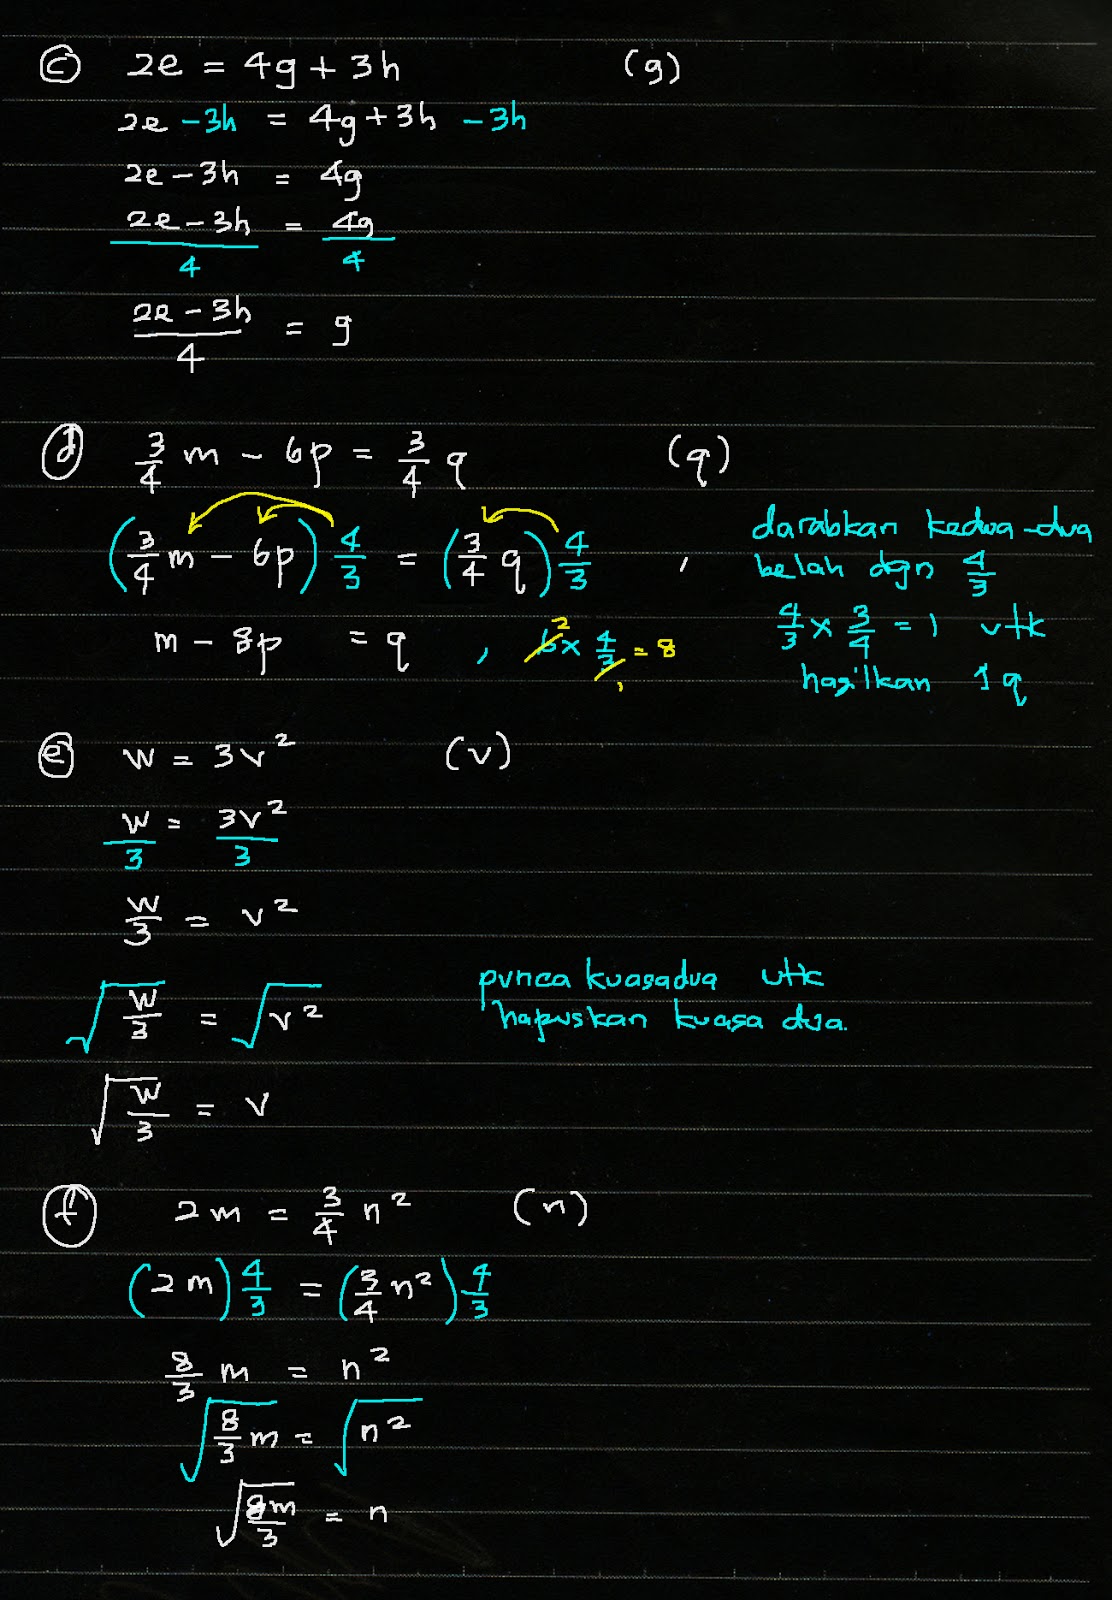 (c) 2e = 4g + 3h (g)
2e - 3h = 4g + 3h - 3h
2e - 3h = 4g
(2e - 3h)/4 = 4g/4
(2e - 3h)/4 = g
(d) 3/4 m - 6p = 3/4 q (q)
(3/4 m - 6p) 4/3 = (3/4 q) 4/3 , darabkan kedua-dua
belah dgn 4/3
m - 8p = q , 6² x 4/3₁ = 8
4/3 x 3/4 = 1 utk
hasilkan 1q
(e) w = 3v² (v)
w/3 = 3v²/3
w/3 = v²
√(w/3) = √v²
punca kuasadua utk
hapuskan kuasa dua.
√(w/3) = v
(f) 2m = 3/4 n² (n)
(2m) 4/3 = (3/4 n²) 4/3
8/3 m = n²
√(8/3 m) = √n²
√(8m/3) = n